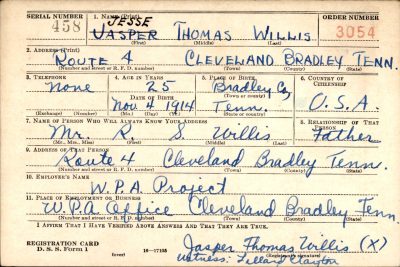 SERIAL NUMBER 1. NAME (Print) ORDER NUMBER
458 JESSE 3054
JASPER THOMAS WILLIS
(First) (Middle) (Last)
2. ADDRESS (Print)
ROUTE 4 CLEVELAND BRADLEY TENN.
(Number and street or R. F. D. number) (Town) (County) (State)
3. TELEPHONE 4. AGE IN YEARS 5. PLACE OF BIRTH 6. COUNTRY OF CITIZENSHIP
None 25 Bradley Co,
DATE OF BIRTH (Town or county)
Nov. 4 1914 Tenn. U.S.A.
(Exchange) (Number) (Mo.) (Day) (Yr.) (State or country)
7. NAME OF PERSON WHO WILL ALWAYS KNOW YOUR ADDRESS 8. RELATIONSHIP OF THAT PERSON
Mr. R. S. Willis Father
(Mr., Mrs., Miss) (First) (Middle) (Last)
9. ADDRESS OF THAT PERSON
Route 4 Cleveland Bradley Tenn.
(Number and street or R. F. D. number) (Town) (County) (State)
10. EMPLOYER'S NAME
W.P.A. Project
11. PLACE OF EMPLOYMENT OR BUSINESS
W.P.A. Office Cleveland Bradley Tenn.
(Number and street or R. F. D. number) (Town) (County) (State)
I AFFIRM THAT I HAVE VERIFIED ABOVE ANSWERS AND THAT THEY ARE TRUE.
REGISTRATION CARD
D. S. S. Form 1 16—17105 Jasper Thomas Willis (X)
(Registrant's signature)
Witness: Clayton